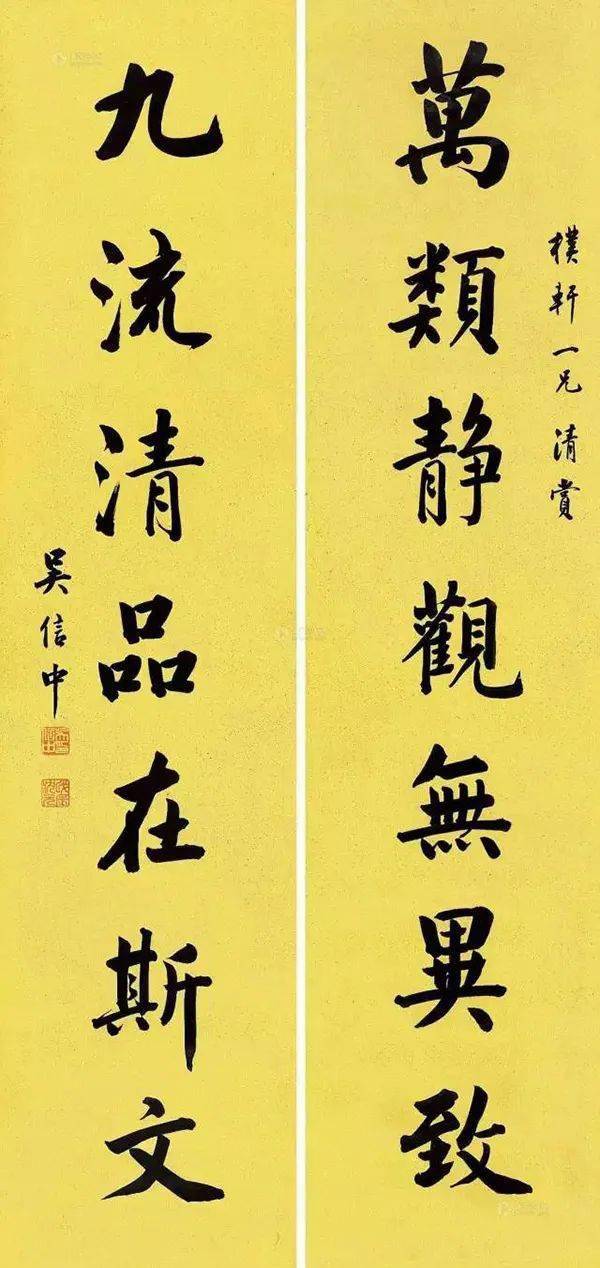 樸軒一兄清賞
萬類靜觀無異致
九流清品在斯文
吳信中